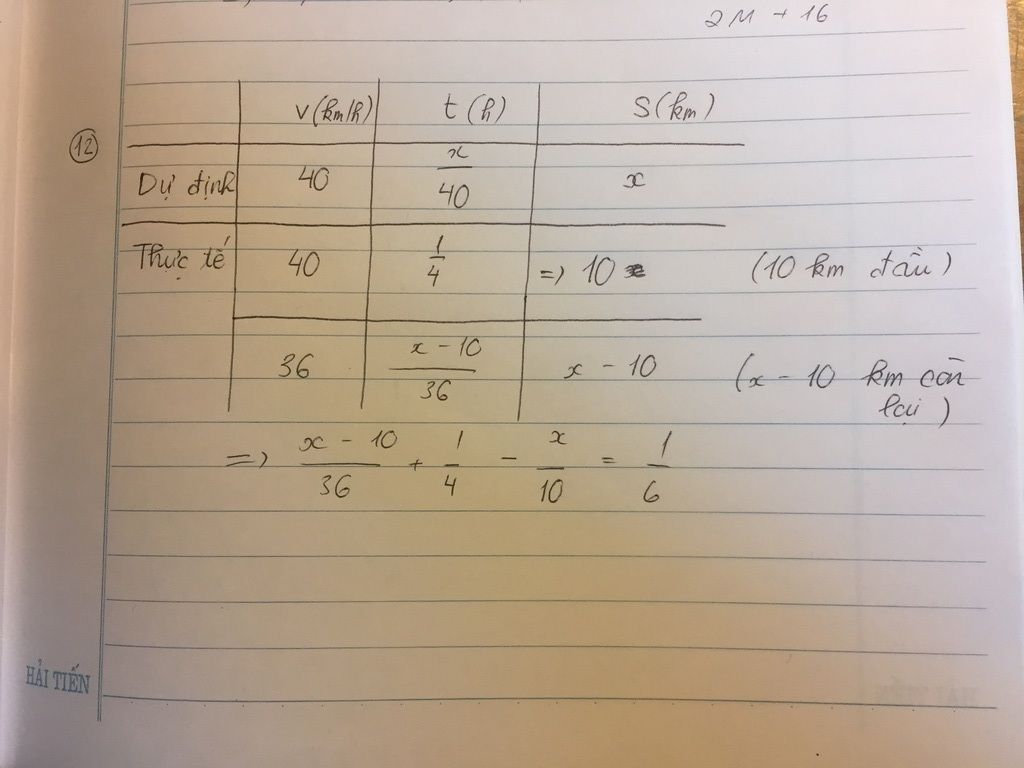 2M + 16
12
v (km/h) t (h) S (km)
Dự định 40 x/40 x
Thực tế 40 1/4 => 10 (10 km đầu)
36 x - 10/36 x - 10 (x - 10 km còn
lại)
=> x - 10/36 + 1/4 - x/10 = 1/6
HẢI TIẾN